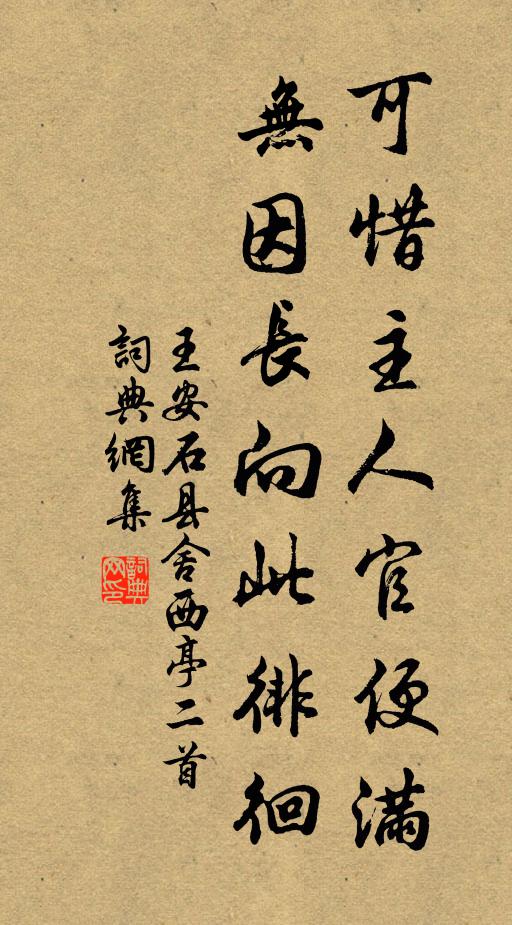 可惜主人官便滿
無因長向此徘徊
王安石县舍西亭二首
詞典網集
詞典網印